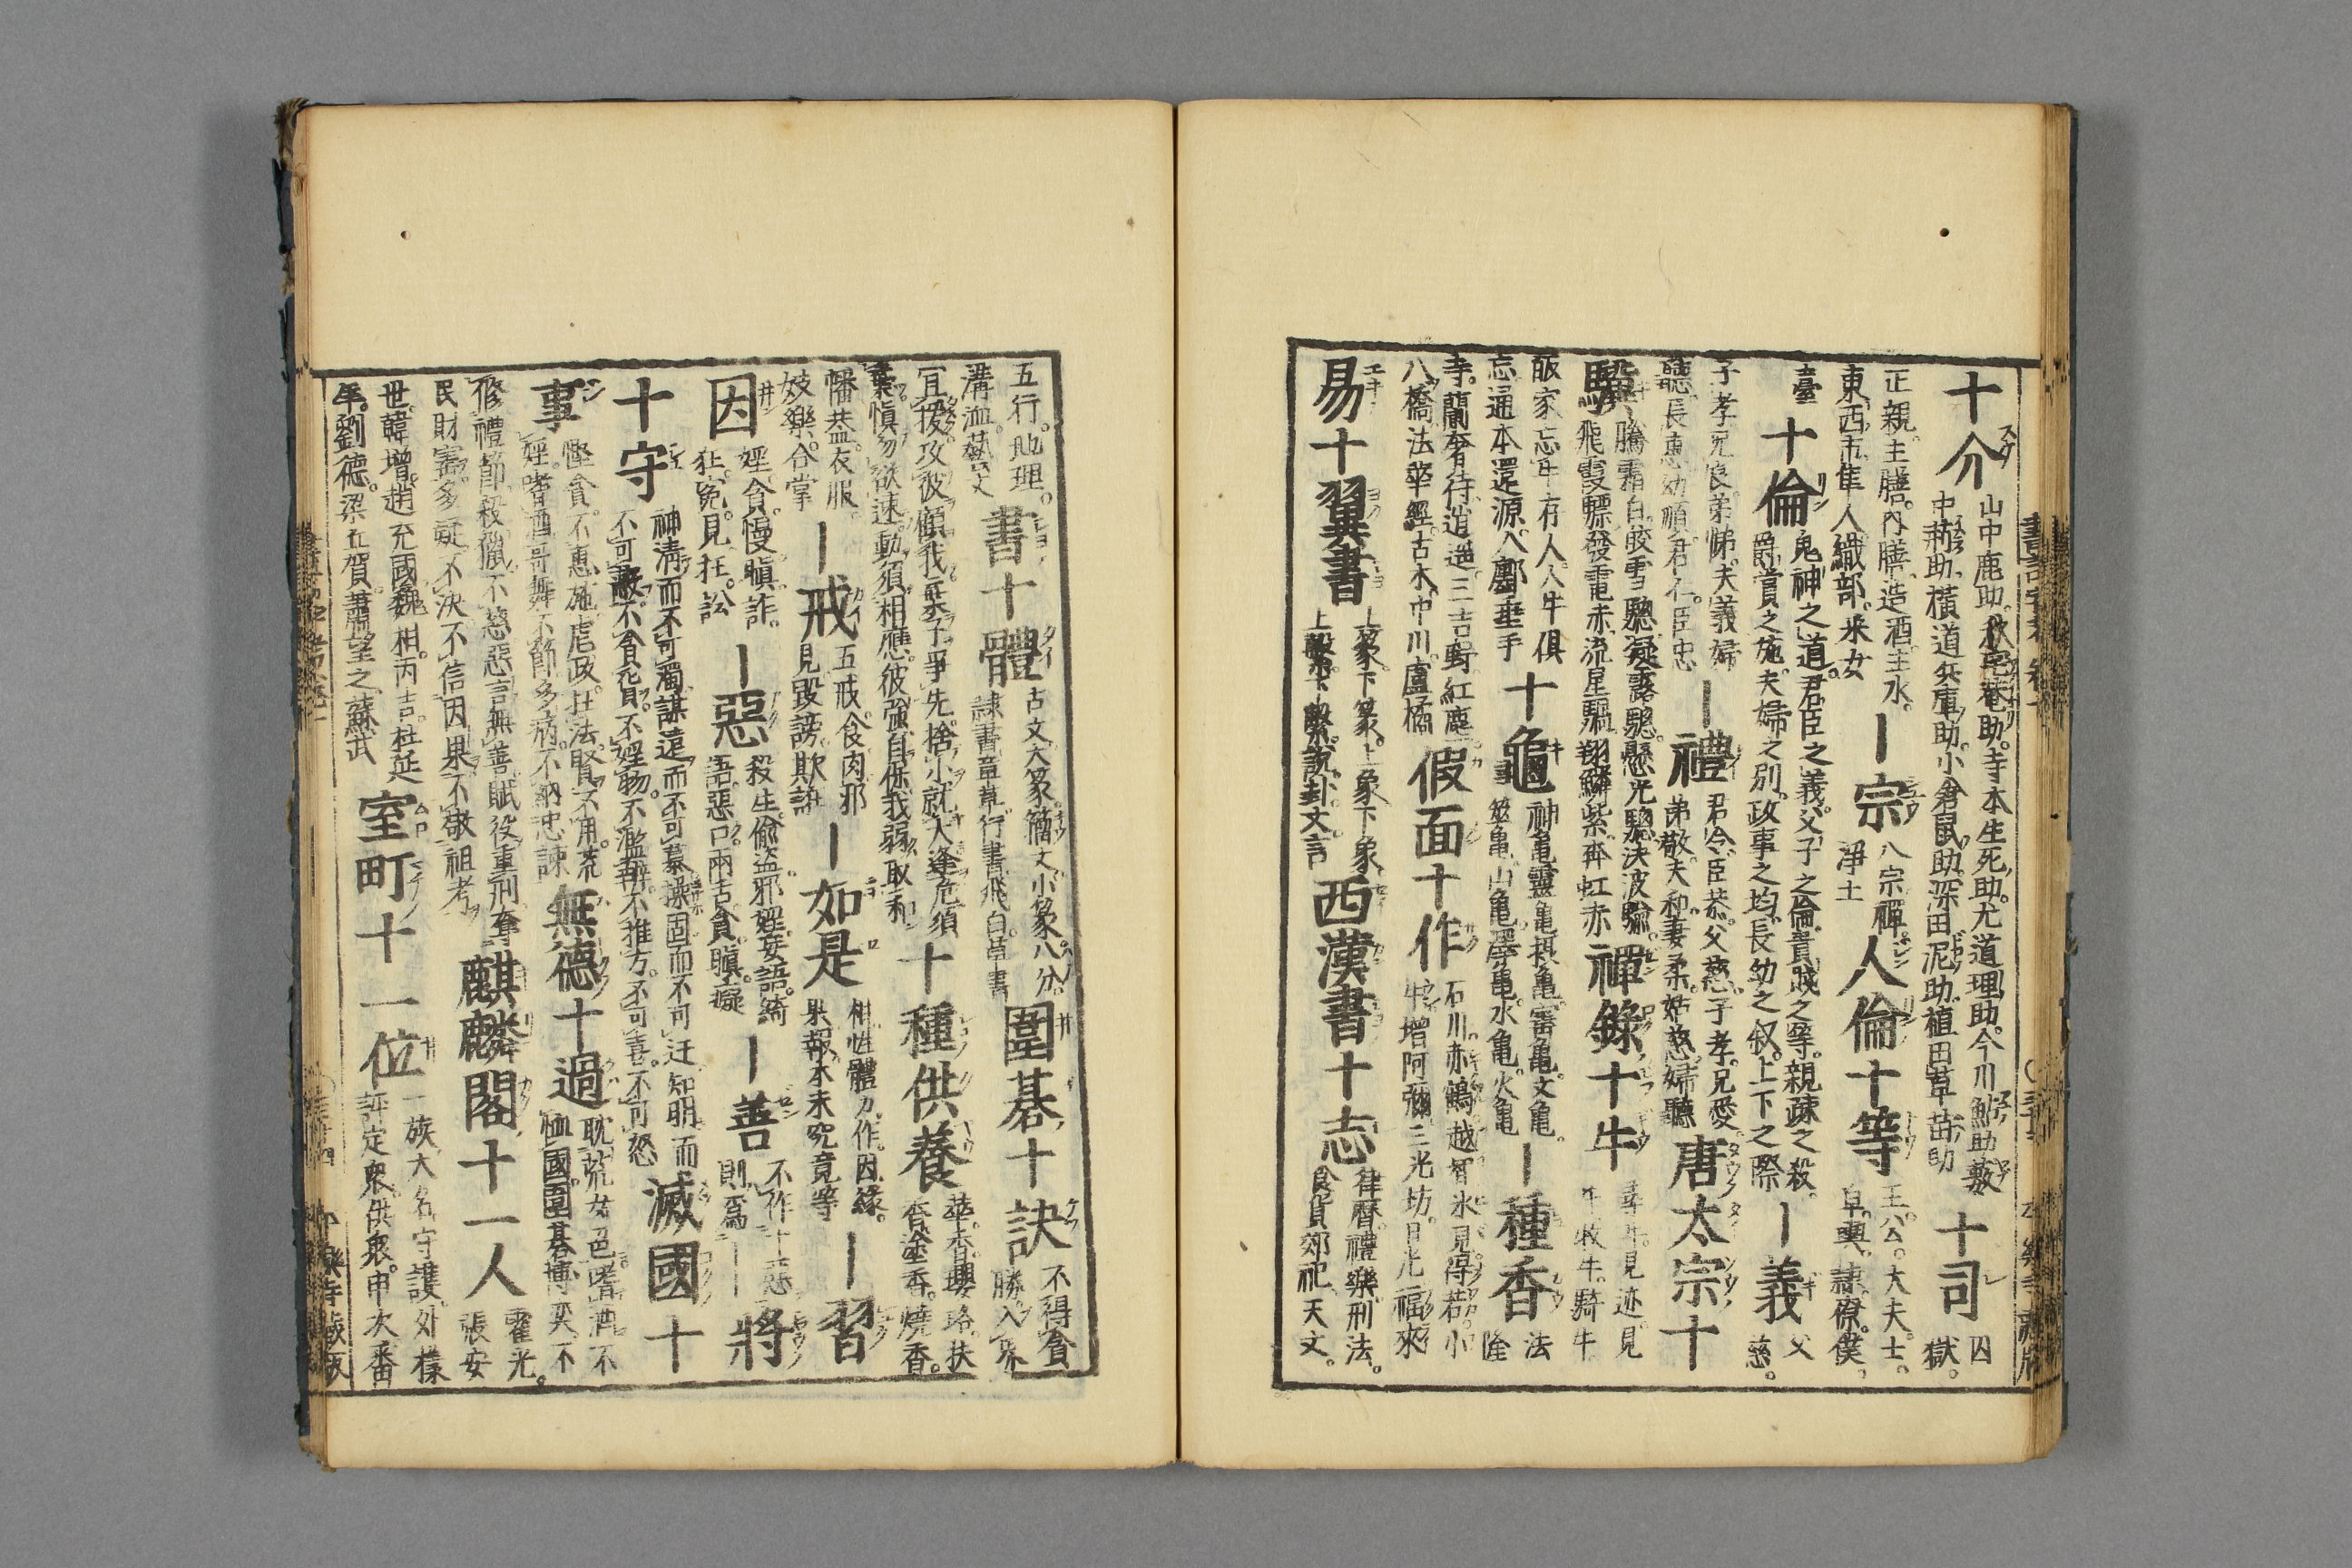 十介 山中鹿助。秋宅菴助。寺本生死助。尤道理助。今川鮎助。藪
中荊助。横道兵庫助。小倉鼠助。深田泥助。植田草苗助 十司 囚獄。
正親。主膳。内膳。造酒。主水。
東西市。隼人。織部。采女 ｜宗 八宗。禪。
淨土 人倫十等 王。公。大夫。士。
皁。輿。隷。僚。僕。
臺 十倫 鬼神之道。君臣之義。父子之倫。貴賤之等。親疎之殺。
爵賞之施。夫婦之別。政事之均。長幼之叙。上下之際 ｜義 父慈。
子孝。兄良。弟悌。夫義。婦
聽。長惠。幼順。君仁。臣忠 ｜禮 君令。臣恭。父慈。子孝。兄愛
弟敬。夫和。妻柔。姑慈。婦聽 唐太宗十
驥 騰霜白。皎雪驄。凝露驄。懸光驄。決波騟。
飛霞驃。發電赤。流星騧。翔麟紫。奔虹赤 禪錄十牛 尋牛。見迹。見
牛。牧牛。騎牛
皈家。忘牛存人。人牛俱
忘。返本還源。入鄽垂手 十龜 神龜。靈龜。攝龜。寶龜。文龜。
筮龜。山龜。澤龜。水龜。火龜 ｜種香 法隆
寺。蘭奢待。逍遙。三吉野。紅塵。
八橋。法華經。古木。中川。盧橘 假面十作 石川。赤鶴。越智。氷見。得若。小
牛。增阿彌。三光坊。日光。福來
易十翼書 上彖。下彖。上象。下象。
上繫。下繫。說卦。文言 西漢書十志 律曆。禮樂。刑法。
食貨。郊祀。天文。
五行。地理。
溝洫。藝文 書十體 古文。大篆。籀文。小篆。八分。
隷書。章草。行書。飛白。草書 圍碁十訣 不得貪
勝。入界
宜緩。攻彼顧我。棄子爭先。捨小就大。逢危須
棄。愼勿欲速。動須相應。彼強自保。我弱取和 十種供養 華。香。瓔珞。抹
香。塗香。燒香。
幡蓋。衣服。
妓樂。合掌 ｜戒 五戒。食肉。邪
見。毀謗。欺誑 ｜如是 相。性。體。力。作。因。緣。
果。報。本末究竟等 ｜習
因 婬。貪。慢。瞋。詐。
誑。冤。見。枉。訟 ｜惡 殺生。偸盜。邪婬。妄語。綺
語。惡口。兩舌。貪。瞋。癡 ｜善 不作十惡
則爲｜｜ ｜將
十守 神淸而不可濁。謀遠而不可慕。操固而不可迁。知明而
不可蔽。不貪貨。不婬物。不濫辯。不推方。不可喜。不可怒 滅國十
事 慳貪。不惠施。虐政。枉法。賢不用。荒
婬。嗜酒。哥舞不節。多病。不納忠諫 無德十過 耽荒女色。嗜酒。不
恤國。圍碁博奕。不
修禮節。殺獵。不慈。惡言無善。賦役重刑。奪
民財寶。多疑不決。不信因果。不敬祖考 麒麟閣十一人 霍光。
張安
世。韓增。趙充國。魏相。丙吉。杜延
年。劉德。梁丘賀。蕭望之。蘇武 室町十一位 一族。大名。守護。外樣
評定衆。供衆。申次。番